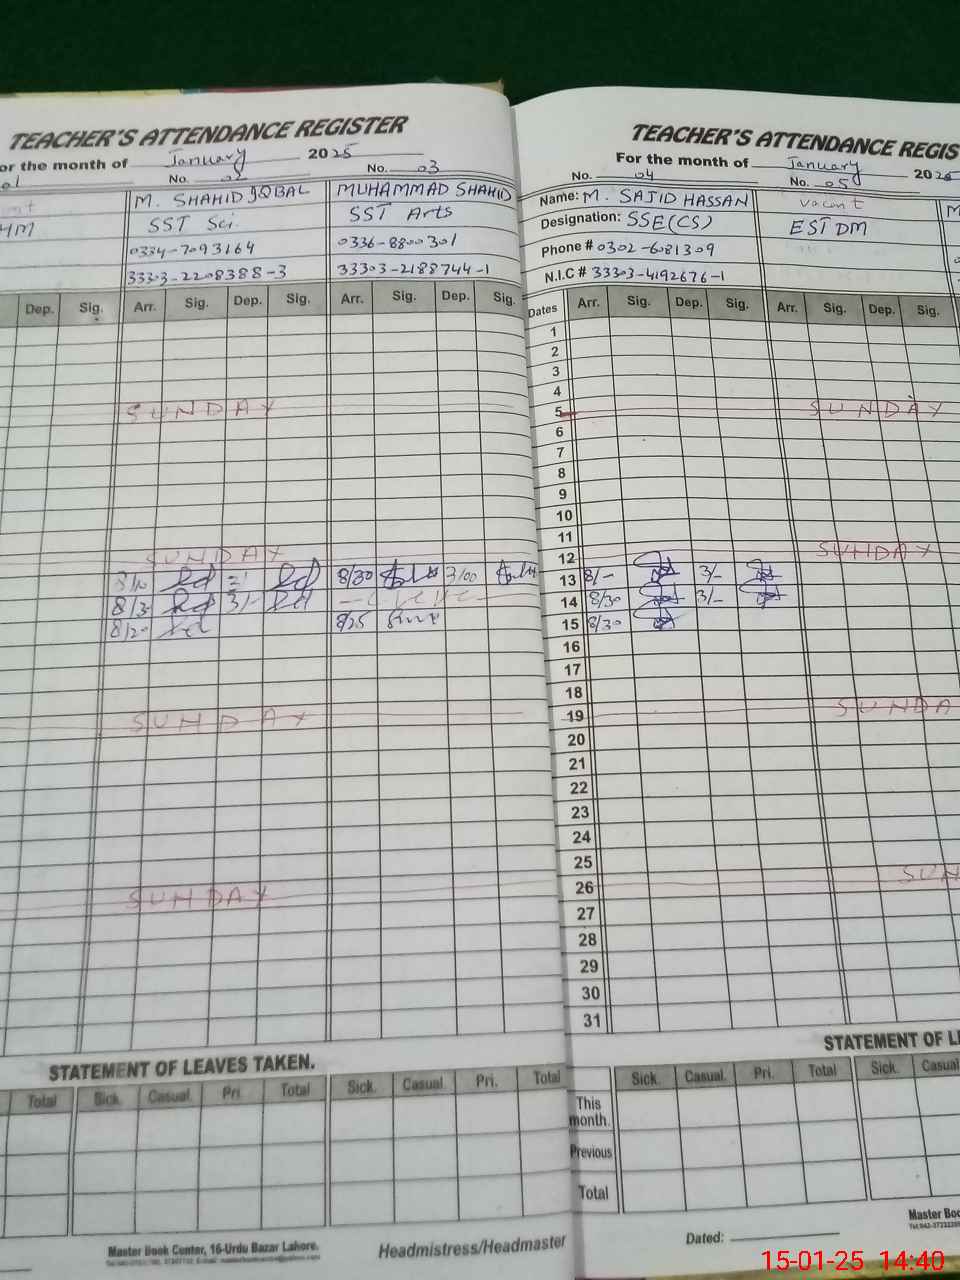 TEACHER'S ATTENDANCE REGISTER
or the month of January 2025
No. 02 No. 03
M. SHAHID IQBAL MUHAMMAD SHAHID
HM SST Sci. SST Arts
0334-7093164 0336-8800301
33303-2208388-3 33303-2188744-1
Dep. Sig. Arr. Sig. Dep. Sig. Arr. Sig. Dep. Sig.
SUNDAY
SUNDAY
8/30 3/00
8/3 3/-
8/20 8/25
SUNDAY
SUNDAY
STATEMENT OF LEAVES TAKEN.
Total Sick. Casual. Pri. Total Sick. Casual. Pri. Total
Master Book Center, 16-Urdu Bazar Lahore.
Headmistress/Headmaster
TEACHER'S ATTENDANCE REGIS
For the month of January 202
No. 04 No. 05
Name: M. SAJID HASSAN vacant M
Designation: SSE(CS) EST DM
Phone # 0302-6081309
N.I.C # 33303-4192676-1
Dates Arr. Sig. Dep. Sig. Arr. Sig. Dep. Sig.
1
2
3
4
5 SUNDAY
6
7
8
9
10
11
12 SUNDAY
13 8/- 3/-
14 8/30 3/-
15 8/30
16
17
18
19 SUNDA
20
21
22
23
24
25
26 SUN
27
28
29
30
31
STATEMENT OF L
Sick. Casual. Pri. Total Sick. Casual
This month.
Previous
Total
Master Boo
Dated:
15-01-25 14:40